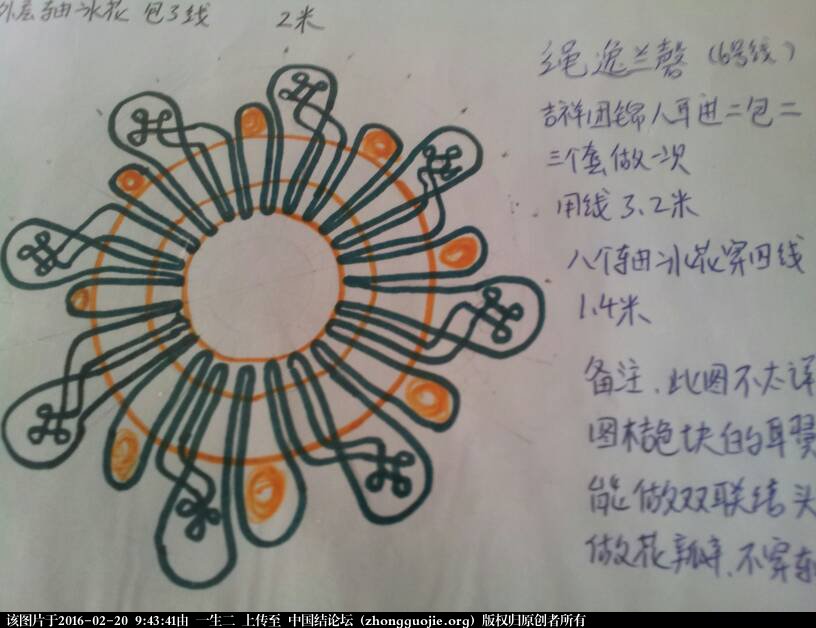 外层轴冰花 包3线 2米
绳逸兰馨（6号线）
吉祥团锦人耳进二包二
三个套做一次
用线 3.2米
八个轴冰花穿四线
1.4米
备注、此图不太详
图桔色块的耳翼
能做双联结头
做花瓣、不穿轴
该图片于2016-02-20 9:43:41由 一生二 上传至 中国结论坛 (zhongguojie.org) 版权归原创者所有